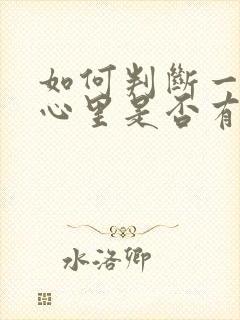 如何判斷一
心里是否有
水洛卿